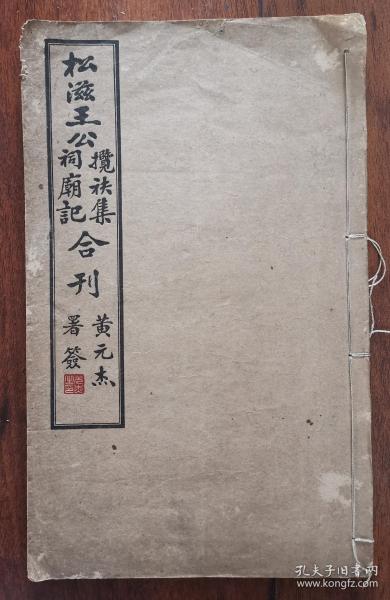 松滋王公攬祛集祠廟記合刊
黃元杰署簽
孔夫子旧书网